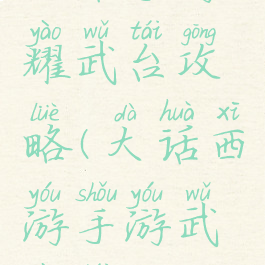 yào wǔ tái gōng
耀武台攻
lüè dà huà xī
略(大话西
yóu shǒu yóu wǔ
游手游武